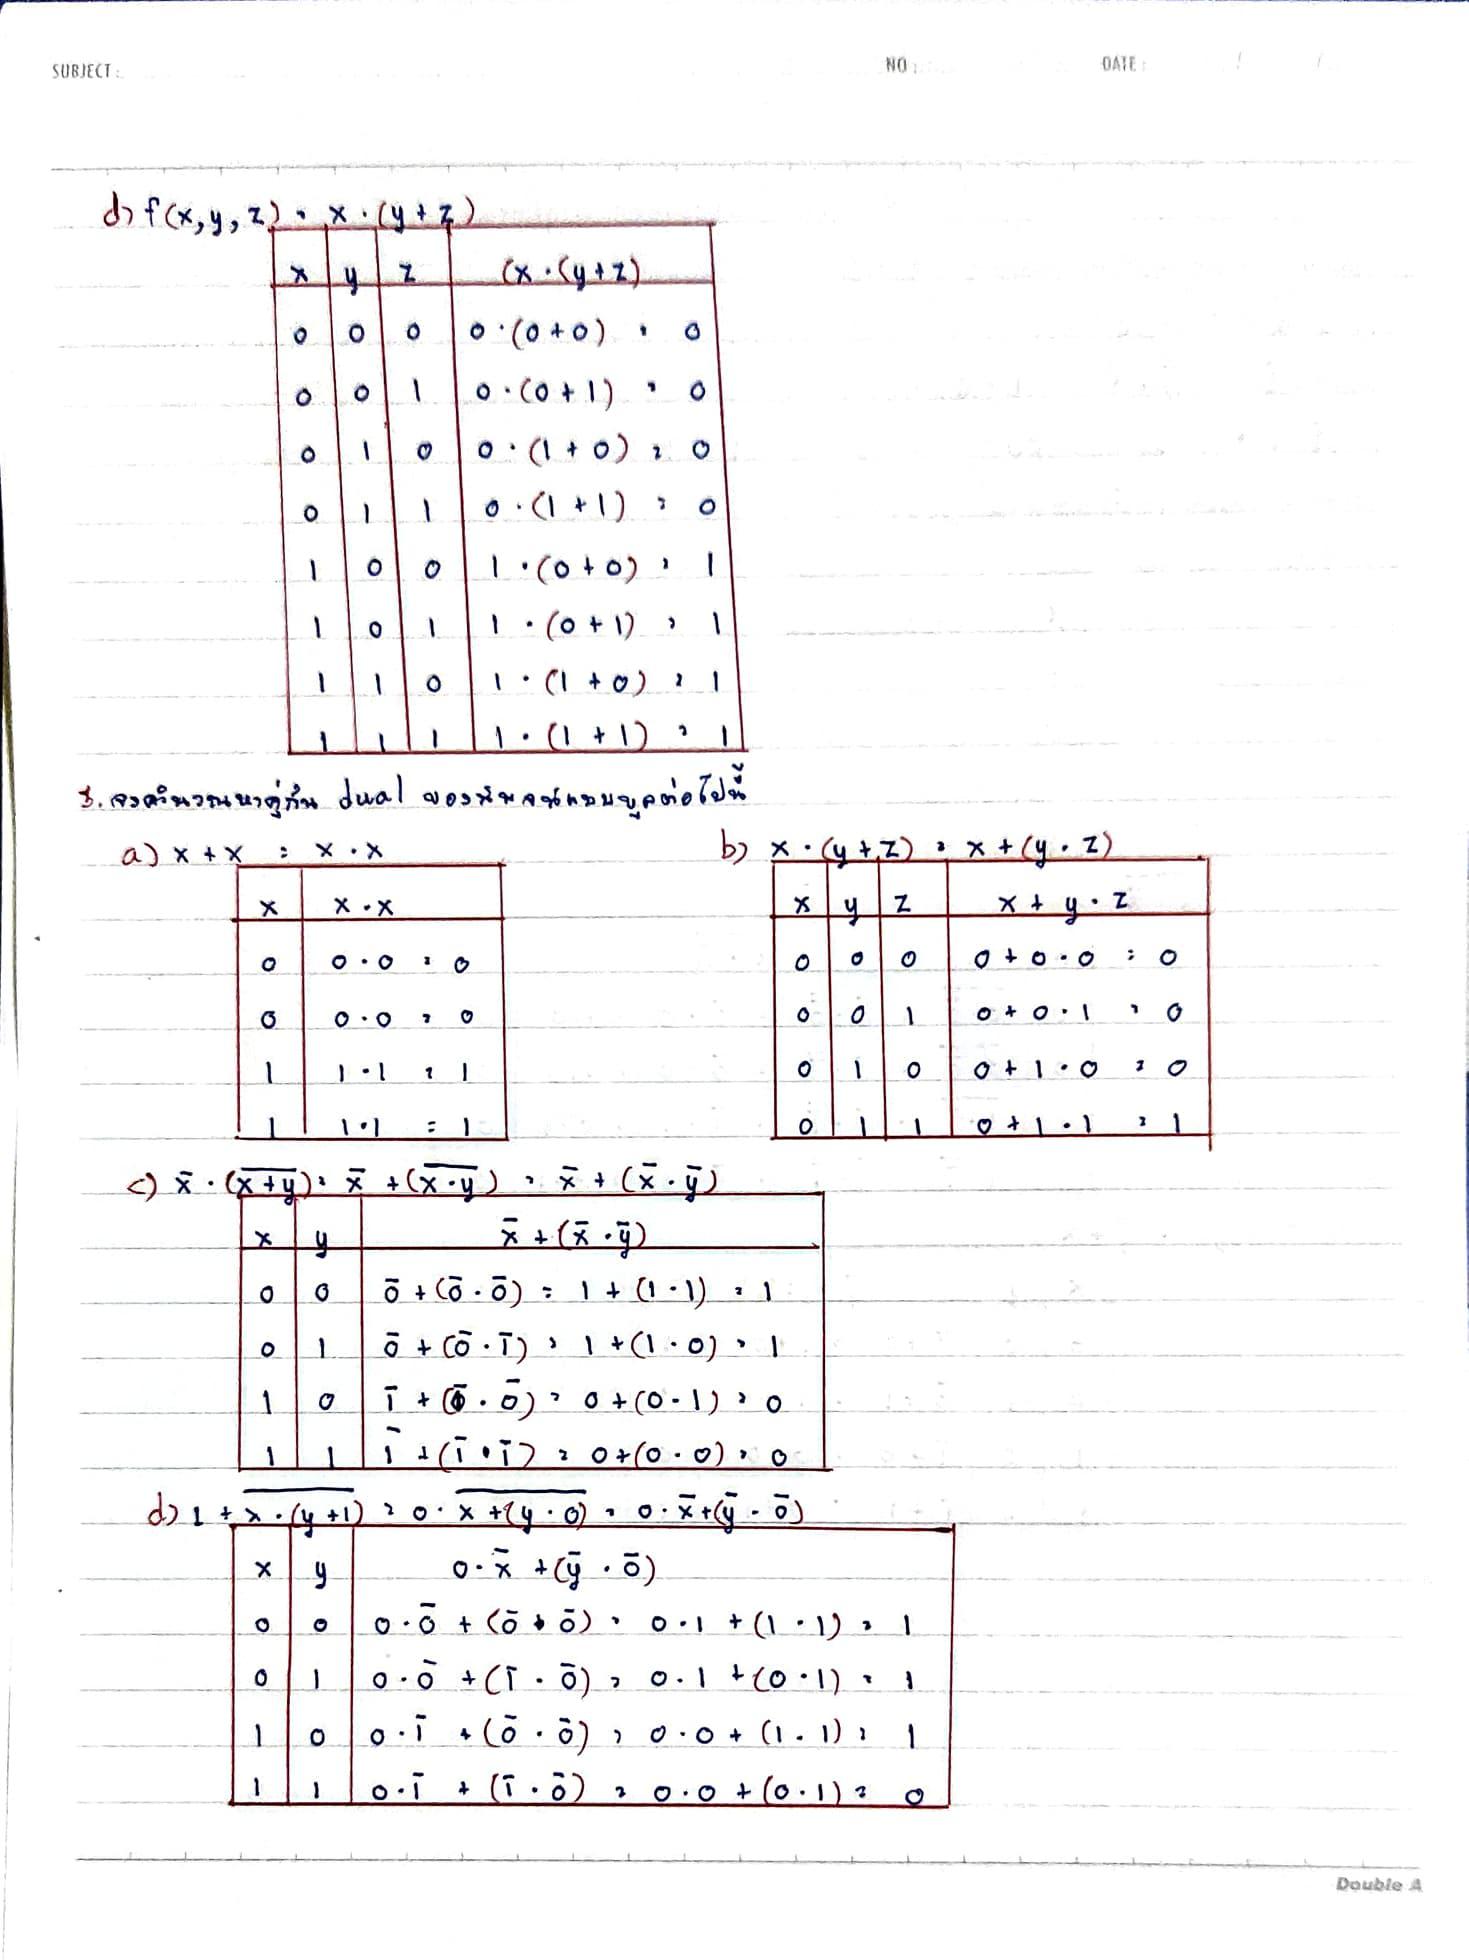 SUBJECT :
NO :
DATE : / /
d) f(x,y,z) = x · (y + z)
x y z (x · (y + z)
0 0 0 0 · (0 + 0) = 0
0 0 1 0 · (0 + 1) = 0
0 1 0 0 · (1 + 0) = 0
0 1 1 0 · (1 + 1) = 0
1 0 0 1 · (0 + 0) = 1
1 0 1 1 · (0 + 1) = 1
1 1 0 1 · (1 + 0) = 1
1 1 1 1 · (1 + 1) = 1
3. จงคำนวณหาคู่กัน dual ของนิพจน์แบบบูลต่อไปนี้
a) x + x = x · x
x x · x
0 0 · 0 = 0
0 0 · 0 = 0
1 1 · 1 = 1
1 1 · 1 = 1
b) x · (y + z) = x + (y · z)
x y z x + y · z
0 0 0 0 + 0 · 0 = 0
0 0 1 0 + 0 · 1 = 0
0 1 0 0 + 1 · 0 = 0
0 1 1 0 + 1 · 1 = 1
c) x̄ · (x̅+̅y̅) = x̄ + (x̅·̅y̅) = x̄ + (x̄ · ȳ)
x y x̄ + (x̄ · ȳ)
0 0 0̄ + (0̄ · 0̄) = 1 + (1 · 1) = 1
0 1 0̄ + (0̄ · 1̄) = 1 + (1 · 0) = 1
1 0 1̄ + (0̄ · 0̄) = 0 + (0 · 1) = 0
1 1 1̄ + (1̄ · 1̄) = 0 + (0 · 0) = 0
d) 1 + x̅ ̅·̅ ̅(̅y̅ ̅+̅1̅)̅ = 0 · x̅ ̅+̅(̅y̅ ̅·̅ ̅0̅)̅ = 0 · x̄ + (ȳ · 0̄)
x y 0 · x̄ + (ȳ · 0̄)
0 0 0 · 0̄ + (0̄ · 0̄) = 0 · 1 + (1 · 1) = 1
0 1 0 · 0̄ + (1̄ · 0̄) = 0 · 1 + (0 · 1) = 1
1 0 0 · 1̄ + (0̄ · 0̄) = 0 · 0 + (1 · 1) = 1
1 1 0 · 1̄ + (1̄ · 0̄) = 0 · 0 + (0 · 1) = 0
Double A